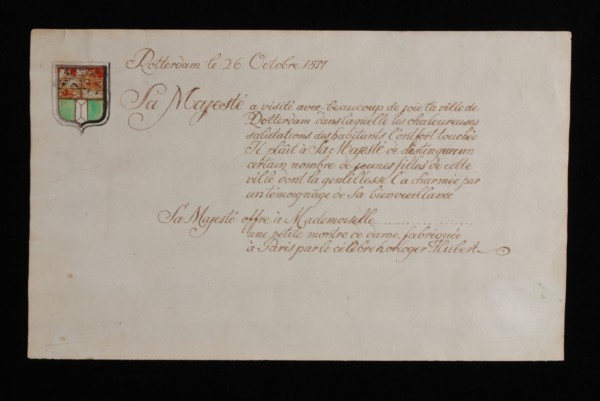 Rotterdam le 26 Octobre 1811
Sa Majesté a visité avec beaucoup de joie la ville de
Rotterdam dans laquelle les chaleureuses
salutations des habitants l'ont fort touchée
Il plaît à Sa Majesté de distinguer un
certain nombre de jeunes filles de cette
ville dont la gentillesse l'a charmée par
un témoignage de Sa bienveillance
Sa Majesté offre à Mademoiselle ....................
une petite montre de dame, fabriquée
à Paris par le célèbre horloger Hubert